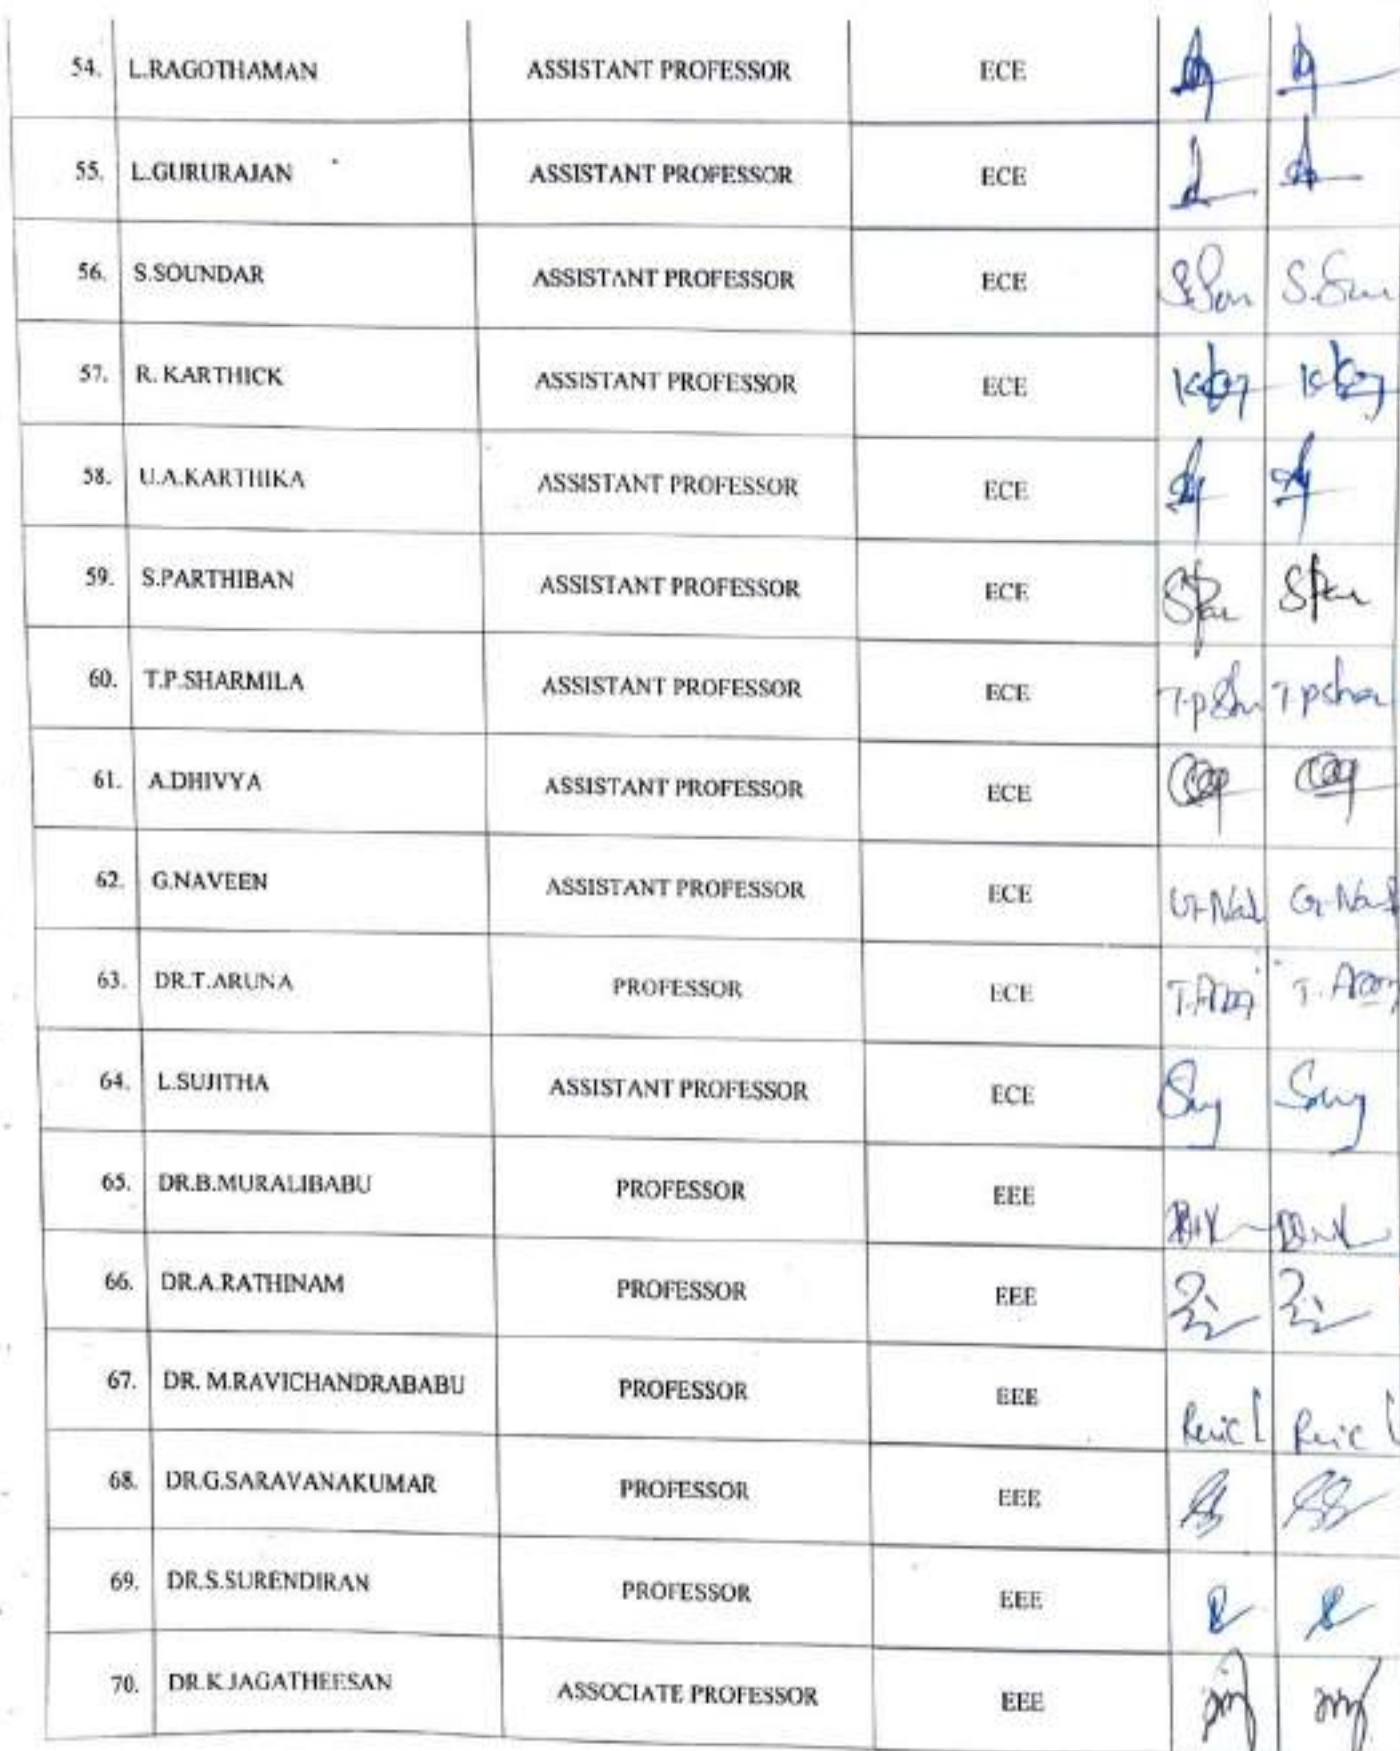 54. L.RAGOTHAMAN ASSISTANT PROFESSOR ECE
55. L.GURURAJAN ASSISTANT PROFESSOR ECE
56. S.SOUNDAR ASSISTANT PROFESSOR ECE
57. R. KARTHICK ASSISTANT PROFESSOR ECE
58. U.A.KARTHIKA ASSISTANT PROFESSOR ECE
59. S.PARTHIBAN ASSISTANT PROFESSOR ECE
60. T.P.SHARMILA ASSISTANT PROFESSOR ECE
61. A.DHIVYA ASSISTANT PROFESSOR ECE
62. G.NAVEEN ASSISTANT PROFESSOR ECE
63. DR.T.ARUNA PROFESSOR ECE
64. L.SUJITHA ASSISTANT PROFESSOR ECE
65. DR.B.MURALIBABU PROFESSOR EEE
66. DR.A.RATHINAM PROFESSOR EEE
67. DR. M.RAVICHANDRABABU PROFESSOR EEE
68. DR.G.SARAVANAKUMAR PROFESSOR EEE
69. DR.S.SURENDIRAN PROFESSOR EEE
70. DR.K.JAGATHEESAN ASSOCIATE PROFESSOR EEE